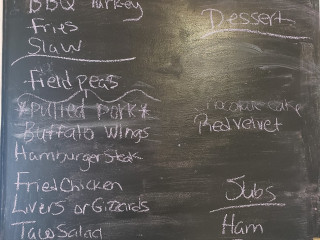 BBQ Turkey
Fries
Slaw
Field peas
*Pulled Pork*
Buffalo Wings
Hamburger Steak
Fried Chicken
Livers or Gizzards
Taco Salad
Dessert
Chocolate Cake
Red Velvet
Subs
Ham